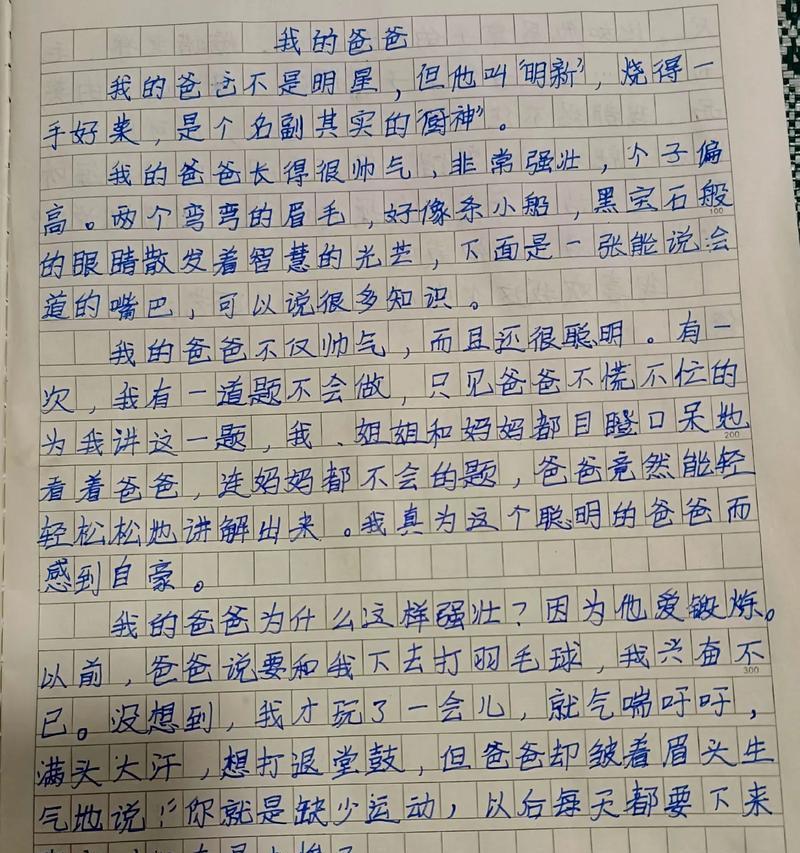 我的爸爸
我的爸爸不是明星，但他叫“明新”，烧得一
手好菜，是个名副其实的“厨神”。
我的爸爸长得很帅气，非常强壮，个子偏
高。两个弯弯的眉毛，好像条小船，黑宝石般
100
的眼睛散发着智慧的光芒，下面是一张能说会
道的嘴巴，可以说很多知识。
我的爸爸不仅帅气，而且还很聪明。有一
次，我有一道题不会做，只见爸爸不慌不忙的
为我讲这一题，我、姐姐和妈妈都目瞪口呆地
200
看着爸爸，连妈妈都不会的题，爸爸竟然能轻
轻松松地讲解出来。我真为这个聪明的爸爸而
感到自豪。
我的爸爸为什么这样强壮？因为他爱锻炼。
以前，爸爸说要和我下去打羽毛球，我兴奋不
300
已。没想到，我才玩了一会儿，就气喘吁吁，
满头大汗，想打退堂鼓，但爸爸却皱着眉头生
气地说：“你就是缺少运动，以后每天都要下来